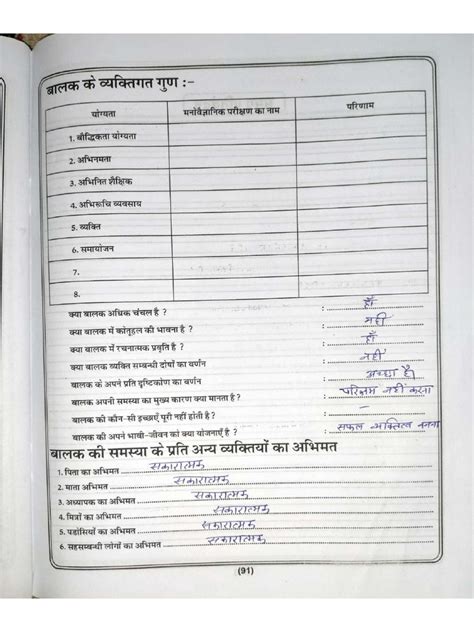 बालक के व्यक्तिगत गुण :-
योग्यता मनोवैज्ञानिक परीक्षण का नाम परिणाम
1. बौद्धिकता योग्यता
2. अभिनमता
3. अभिनित शैक्षिक
4. अभिरूचि व्यवसाय
5. व्यक्ति
6. समायोजन
7.
8.
क्या बालक अधिक चंचल है ? : हाँ
क्या बालक में कौतूहल की भावना है ? : नहीं
क्या बालक में रचनात्मक प्रवृति है ? : हाँ
क्या बालक व्यक्ति सम्बन्धी दोषों का वर्णन : नहीं
बालक के अपने प्रति दृष्टिकोण का वर्णन : अच्छा है।
बालक अपनी समस्या का मुख्य कारण क्या मानता है ? : परिश्रम नहीं करना
बालक की कौन-सी इच्छाएँ पूरी नहीं होती है ? : –
बालक की अपने भावी-जीवन को क्या योजनाएँ है ? : सफल व्यक्तित्व बनना
बालक की समस्या के प्रति अन्य व्यक्तियों का अभिमत
1. पिता का अभिमत सकारात्मक
2. माता अभिमत सकारात्मक
3. अध्यापक का अभिमत सकारात्मक
4. मित्रों का अभिमत सकारात्मक
5. पडोसियों का अभिमत सकारात्मक
6. सहसम्बन्धी लोगों का अभिमत सकारात्मक
(91)